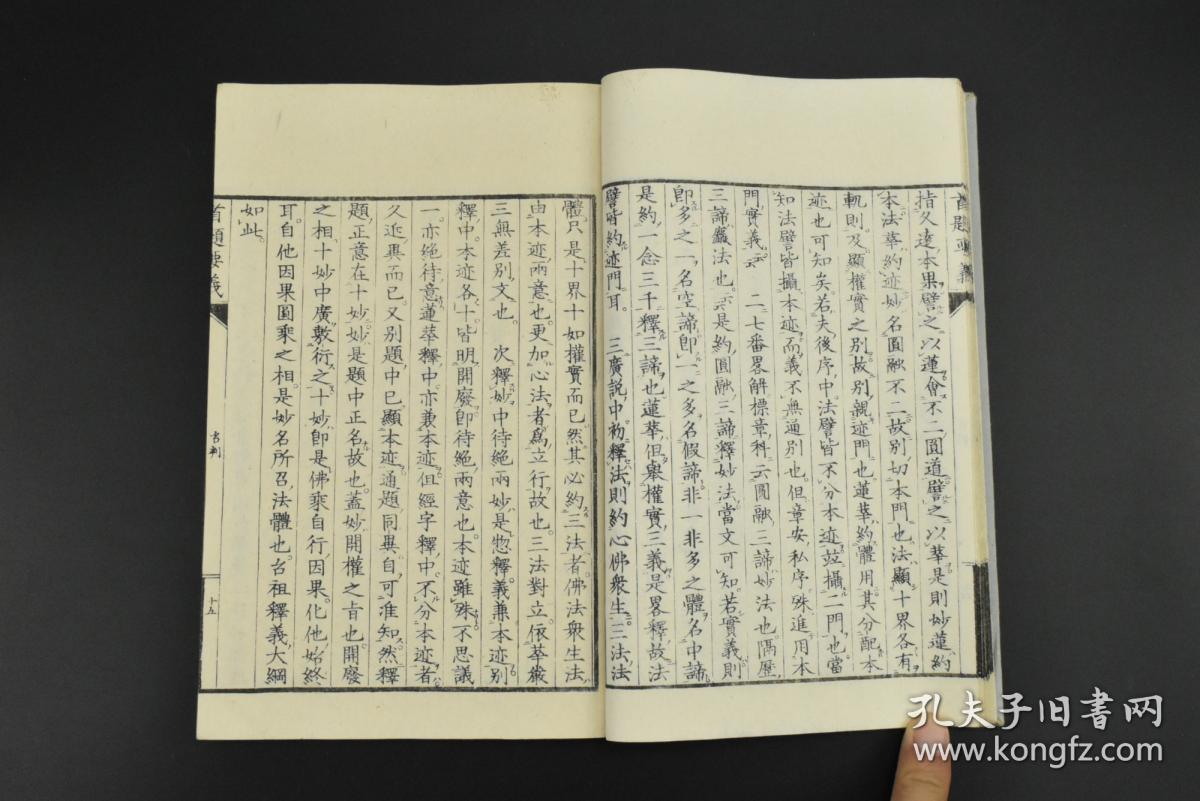 首題要義
指久遠本果譬之以蓮會不二圓道譬之以華是則妙蓮約
本法華約迹妙名圓融不二故別切本門也法顯十界各有
軌則及顯權實之別故別親迹門也蓮華約體用其分配本
迹也可知矣若夫後序中法譬皆不分本迹竝攝二門也當
知法譬皆攝本迹而義不無通別也但章安私序殊進用本
門實義云云　二七番畧解標章科云圓融三諦妙法也隔歷
三諦麤法也示是約圓融三諦釋妙法當文可知若實義則
即多之一名空諦即一之多名假諦非一非多之體名中諦
是約一念三千釋三諦也蓮華但舉權實三義是畧釋故法
譬皆約迹門耳　三廣説中初釋法則約心佛衆生三法法
體只是十界十如權實而已然其必約三法者佛法衆生法
由本迹兩意也更加心法者爲立行故也三法對立依華嚴
三無差別文也　次釋妙中待絶兩妙是惣釋義兼本迹別
釋中本迹各十皆明開廢即待絶兩意也本迹雖殊不思議
一亦絶待意蓮華釋中亦兼本迹但經字釋中不分本迹者
久近異而已又別題中已顯本迹通題同異自可准知然釋
題正意在十妙妙是題中正名故也蓋妙開權之旨也開廢
之相十妙中廣敷衍之十妙即是佛乘自行因果化他始終
耳自他因果圓乘之相是妙名所召法體也台祖釋義大綱
如此
首題要義
十五
孔夫子旧书网
www.kongfz.com